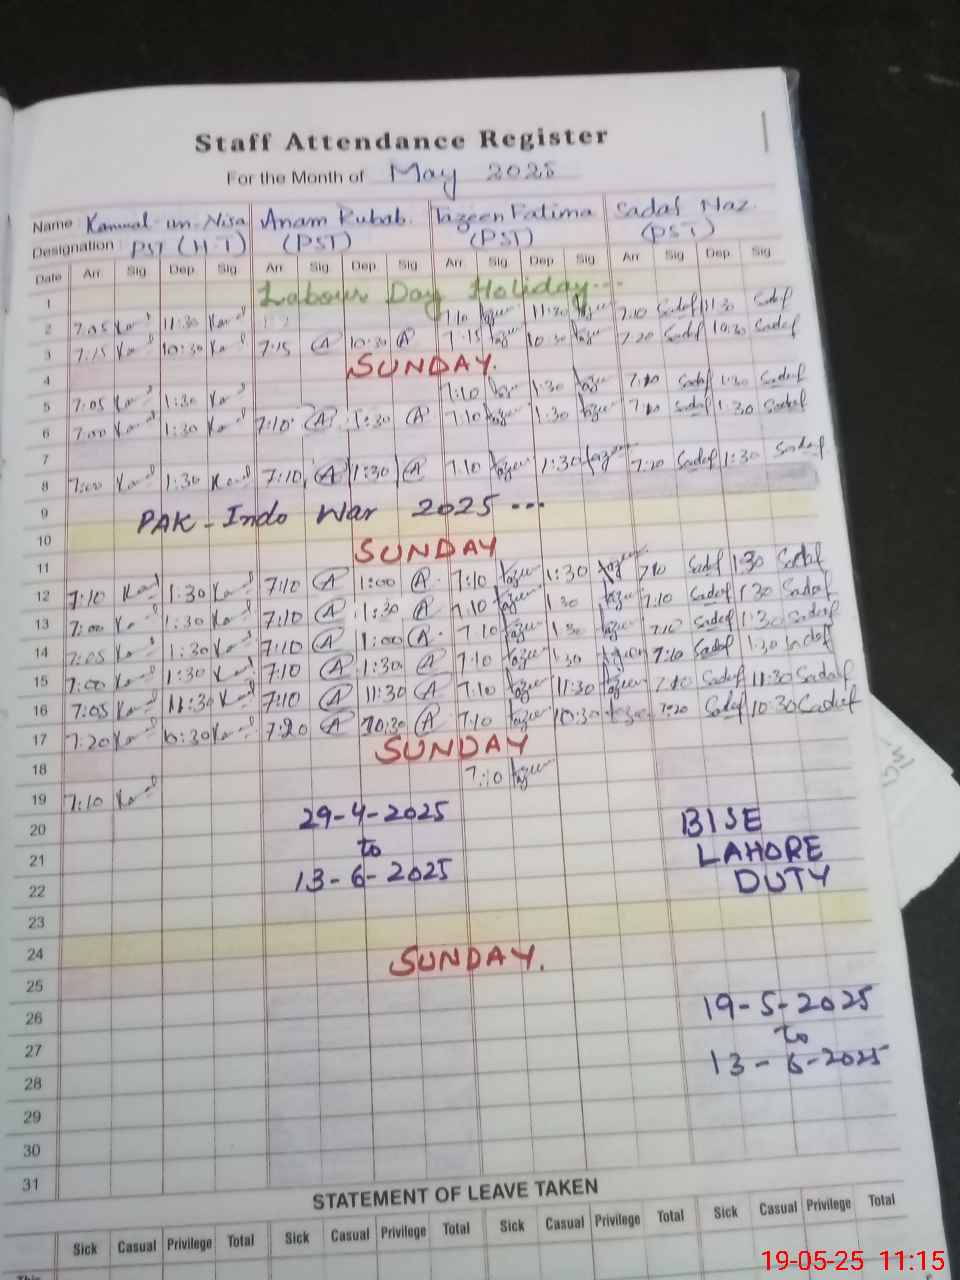 Staff Attendance Register
For the Month of May 2025
Name Kanwal-un-Nisa Anam Rubab. Tazeen Fatima Sadaf Naz.
Designation PST (H.T) (PST) (PST) (PST)
Date Arr. Sig Dep. Sig Arr Sig Dep Sig Arr. Sig Dep Sig Arr Sig Dep Sig
1 Labour Day Holiday...
2 7:05 11:30 7:10 11:30 7:10 Sadaf 11:30 Sadaf
3 7:15 10:30 7:15 A 10:30 A 7:15 10:30 7:20 Sadaf 10:30 Sadaf
4 SUNDAY.
5 7:05 1:30 7:10 1:30 7:10 Sadaf 1:30 Sadaf
6 7:00 1:30 7:10 A 1:30 A 7:10 1:30 7:10 Sadaf 1:30 Sadaf
7
8 7:00 1:30 7:10 A 1:30 A 7:10 1:30 7:20 Sadaf 1:30 Sadaf
9 PAK-Indo War 2025...
10
11 SUNDAY
12 7:10 1:30 7:10 A 1:00 A 7:10 1:30 7:10 Sadaf 1:30 Sadaf
13 7:00 1:30 7:10 A 1:30 A 7:10 1:30 7:10 Sadaf 1:30 Sadaf
14 7:05 1:30 7:10 A 1:00 A 7:10 1:30 7:10 Sadaf 1:30 Sadaf
15 7:00 1:30 7:10 A 1:30 A 7:10 1:30 7:10 Sadaf 1:30 Sadaf
16 7:05 11:30 7:10 A 11:30 A 7:10 11:30 7:10 Sadaf 11:30 Sadaf
17 7:20 10:30 7:20 A 10:30 A 7:10 10:30 7:20 Sadaf 10:30 Sadaf
18 SUNDAY
19 7:10 7:10
20 29-4-2025 BISE
21 to LAHORE
22 13-6-2025 DUTY
23
24
25 SUNDAY.
26 19-5-2025
27 to
28 13-6-2025
29
30
31
STATEMENT OF LEAVE TAKEN
Sick Casual Privilege Total Sick Casual Privilege Total Sick Casual Privilege Total Sick Casual Privilege Total
19-05-25 11:15